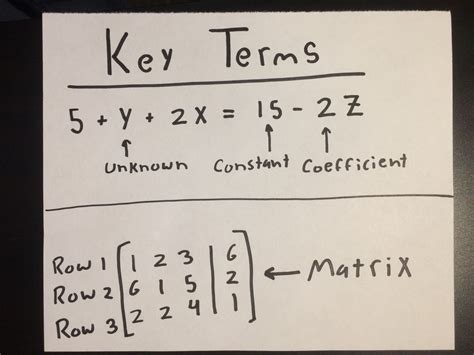 Key Terms
5 + y + 2x = 15 - 2z
↑ ↑ ↑
Unknown Constant Coefficient
Row 1 [1 2 3 | 6]
Row 2 [6 1 5 | 2] ← Matrix
Row 3 [2 2 4 | 1]